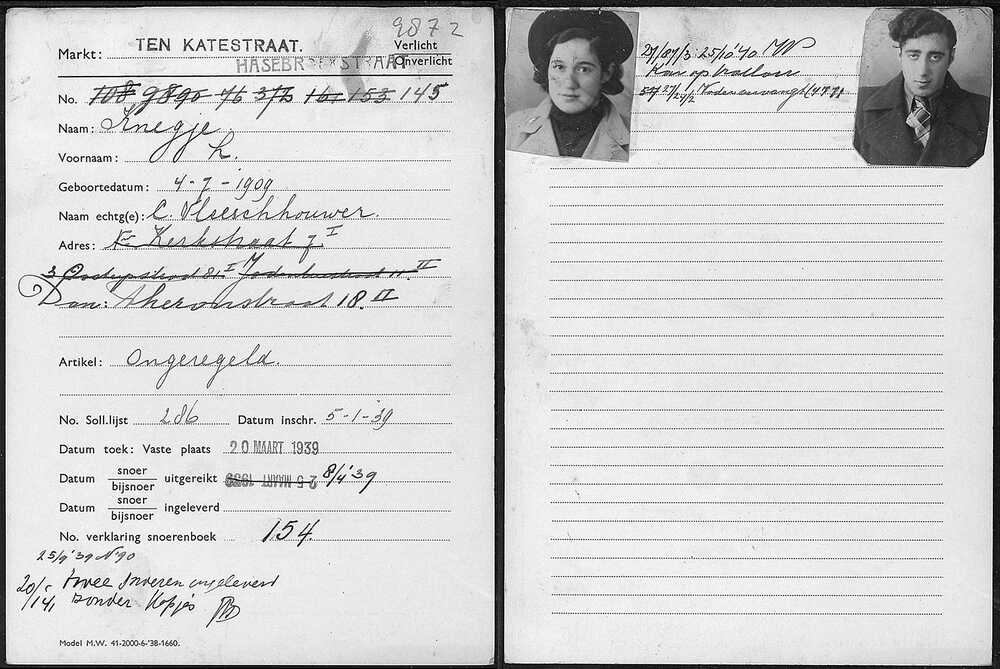 9872
Markt: TEN KATESTRAAT. Verlicht
HASEBROEKSTRAAT Onverlicht
No. 108 9890 76 376 161 153 145
Naam: Knegje,
Voornaam: L.
Geboortedatum: 4-7-1909
Naam echtg(e): C. Vleeschhouwer.
Adres: Kerkstraat 7 I
81 I Jodenbreestraat 11 II
Dan: Theronstraat 18 II
Artikel: Ongeregeld.
No. Soll.lijst 286 Datum inschr. 5-1-39
Datum toek: Vaste plaats 20 MAART 1939
Datum snoer/bijsnoer uitgereikt 25 MAART 1939 8/4'39
Datum snoer/bijsnoer ingeleverd
No. verklaring snoerenboek 154.
25/9'39 N 90
20/1 '41 twee snoeren ingeleverd
zonder Kopjes
Model M.W. 41-2000-6-'38-1660.
25/10'40